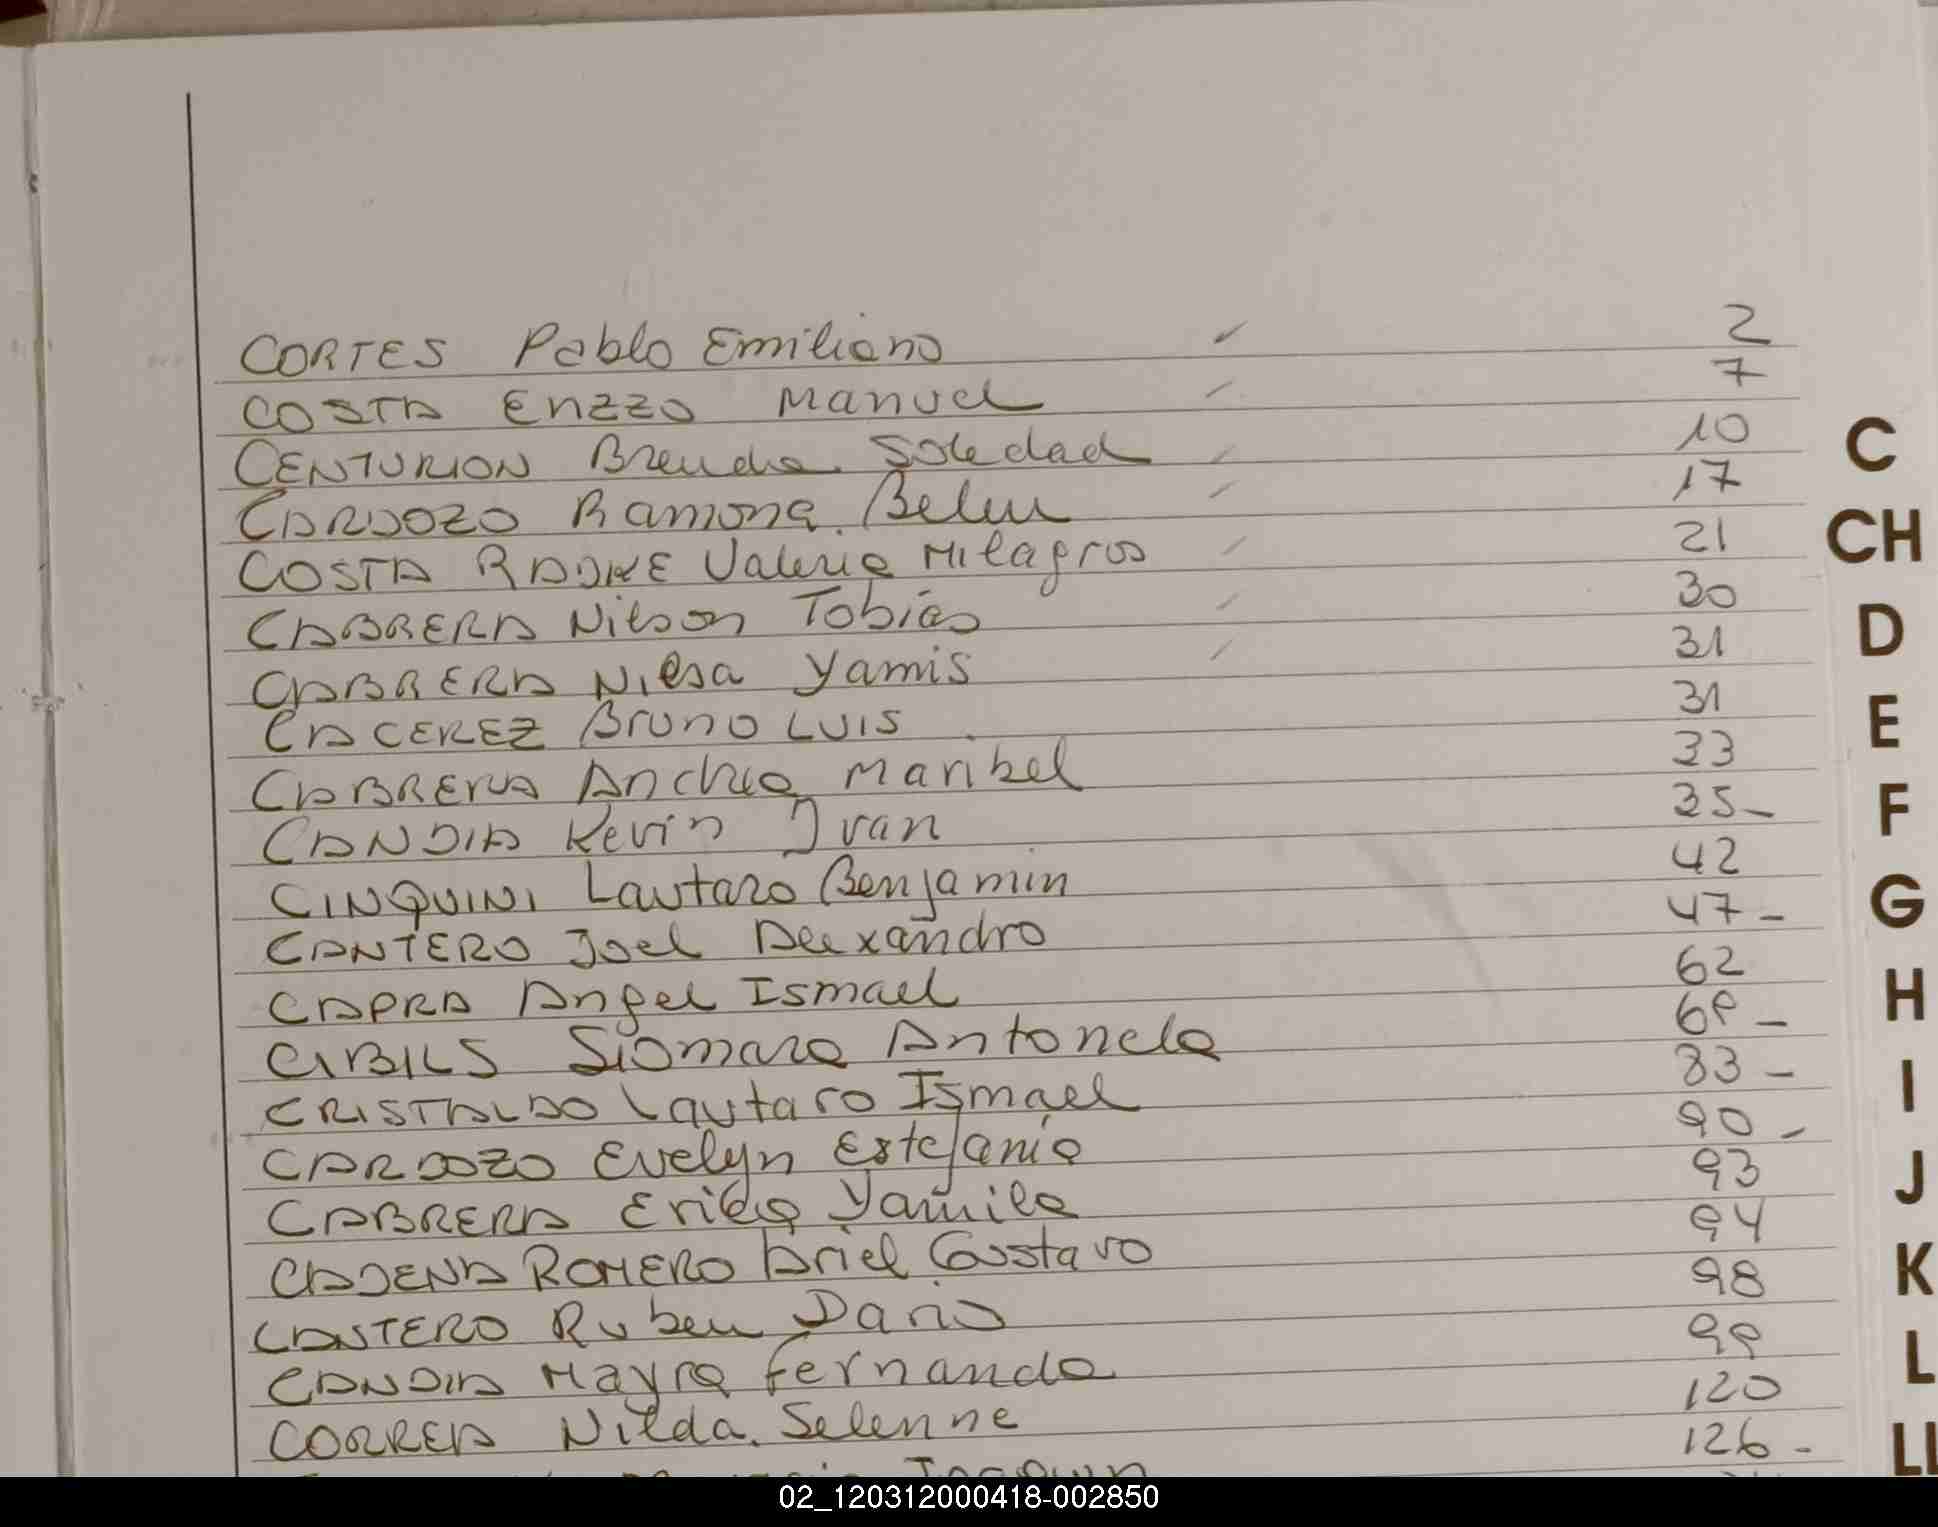 CORTES Pablo Emiliano 2
COSTA Enzzo Manuel 7
CENTURION Brenda Soledad 10
CARDOZO Ramona Belen 17
COSTA RADKE Valeria Milagros 21
CABRERA Nilson Tobias 30
CABRERA Nilsa Yamis 31
CACEREZ Bruno LUIS 31
CABRERA Maribel 33
CANDIA Kevin Ivan 35-
CINQUINI Lautaro Benjamin 42
CANTERO Joel Alexandro 47-
CAPRA Angel Ismael 62
CIBILS Siomara Antonela 69-
CRISTALDO Lautaro Ismael 83-
CARDOZO Evelyn Estefania 90-
CABRERA Erica Yamila 93
CADENA ROMERO Ariel Gustavo 94
CANTERO Ruben Dario 98
CANDIA Mayra Fernanda 99
CORREA Nilda Selenne 120
Joaquin 126-
C
CH
D
E
F
G
H
I
J
K
L
LL
02_120312000418-002850